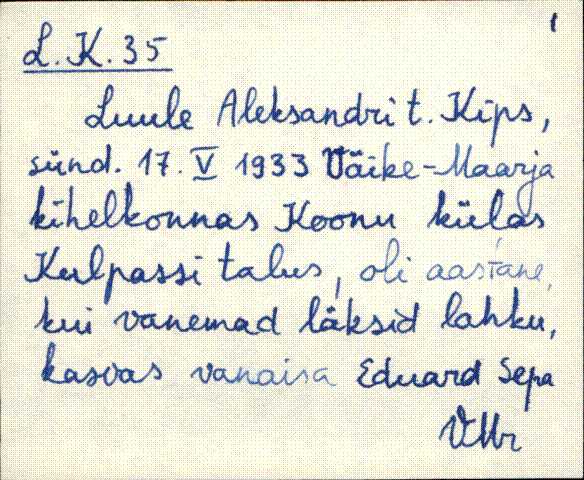 1
L.K.35
Luule Aleksandri t. Kips,
sünd. 17. V 1933 Väike-Maarja
kihelkonnas Koonu külas
Kulpassi talus, oli aastane,
kui vanemad läksid lahku,
kasvas vanaisa Eduard Sepa